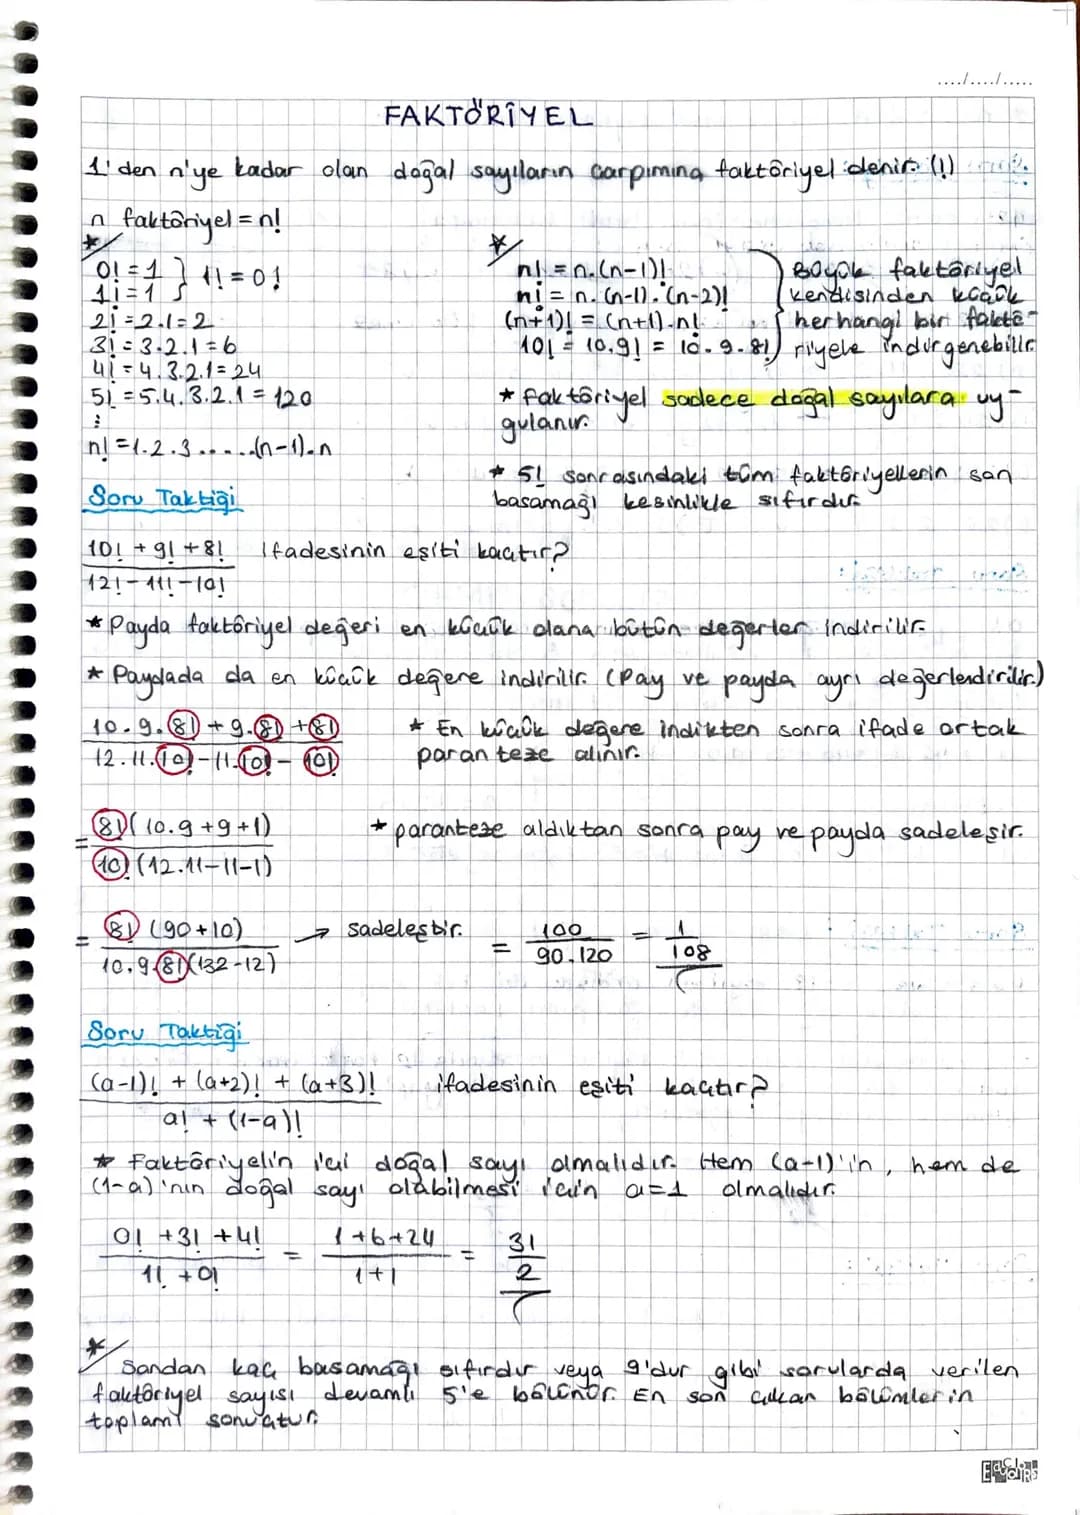 ..../..../.....
FAKTÖRİYEL
1'den n'ye kadar olan doğal sayıların çarpımına faktöriyel denir. (!)
n faktöriyel = n!
0! = 1 } 1! = 0!
1! = 1
2! = 2.1 = 2
3! = 3.2.1 = 6
4! = 4.3.2.1 = 24
5! = 5.4.3.2.1 = 120
⋮
n! = 1.2.3......(n-1).n
* n! = n.(n-1)!
n! = n.(n-1).(n-2)!
(n+1)! = (n+1).n!
10! = 10.9! = 10.9.8!
Büyük faktöriyel
kendisinden küçük
herhangi bir faktö-
riyele indirgenebilir
* faktöriyel sadece doğal sayılara uy-
gulanır.
* 5! sonrasındaki tüm faktöriyellerin son
basamağı kesinlikle sıfırdır.
Soru Taktiği
10! + 9! + 8! ifadesinin eşiti kaçtır?
12! - 11! - 10!
* Payda faktöriyel değeri en küçük olana bütün değerler indirilir.
* Paydada da en küçük değere indirilir. (Pay ve payda ayrı değerlendirilir.)
10.9.8! + 9.8! + 8!
12.11.10! - 11.10! - 10!
* En küçük değere indikten sonra ifade ortak
paranteze alınır.
= 8! (10.9 + 9 + 1)
10! (12.11 - 11 - 1)
* paranteze aldıktan sonra pay ve payda sadeleşir.
= 8! (90 + 10) → sadeleştir. = 100 = 1
10.9.8! (132 - 12) 90.120 108
Soru Taktiği
(a-1)! + (a+2)! + (a+3)! ifadesinin eşiti kaçtır?
a! + (1-a)!
* Faktöriyelin içi doğal sayı olmalıdır. Hem (a-1)'in, hem de
(1-a)'nın doğal sayı olabilmesi için a=1 olmalıdır.
0! + 3! + 4! = 1+6+24 = 31
1! + 0! 1+1 2
* Sondan kaç basamağı sıfırdır veya 9'dur gibi sorularda verilen
faktöriyel sayısı devamlı 5'e bölünür. En son çıkan bölümlerin
toplamı sonuçtur.